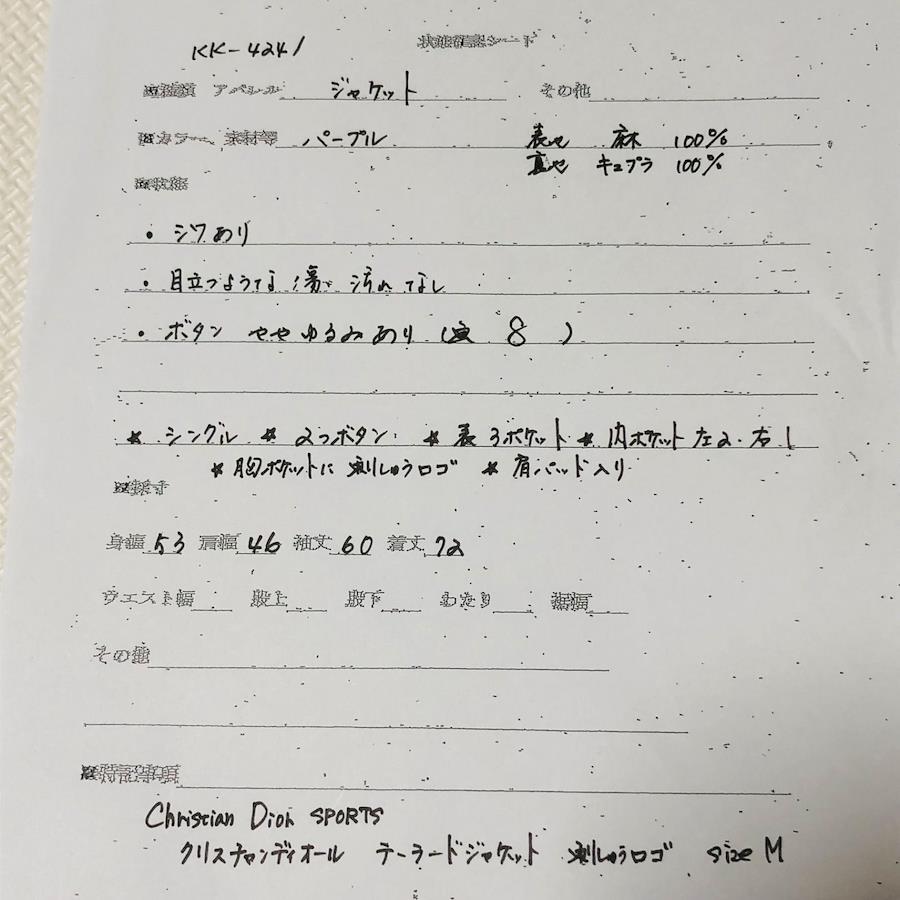 KK-4241
状態確認シート
■種類 アパレル ジャケット その他
■カラー、素材等 パープル 表地 麻 100%
裏地 キュプラ 100%
■状態
・シワあり
・目立つような傷や汚れなし
・ボタン ややゆるみあり ( 8 )
★ シングル ★ 2つボタン ★ 表 3ポケット ★ 内ポケット 左2・右1
★ 胸ポケットに 刺しゅうロゴ ★ 肩パッド入り
■採寸
身幅 53 肩幅 46 袖丈 60 着丈 72
ウエスト幅 股上 股下 わたり 裾幅
その他
■特記事項
Christian Dior SPORTS
クリスチャンディオール テーラードジャケット 刺しゅうロゴ size M